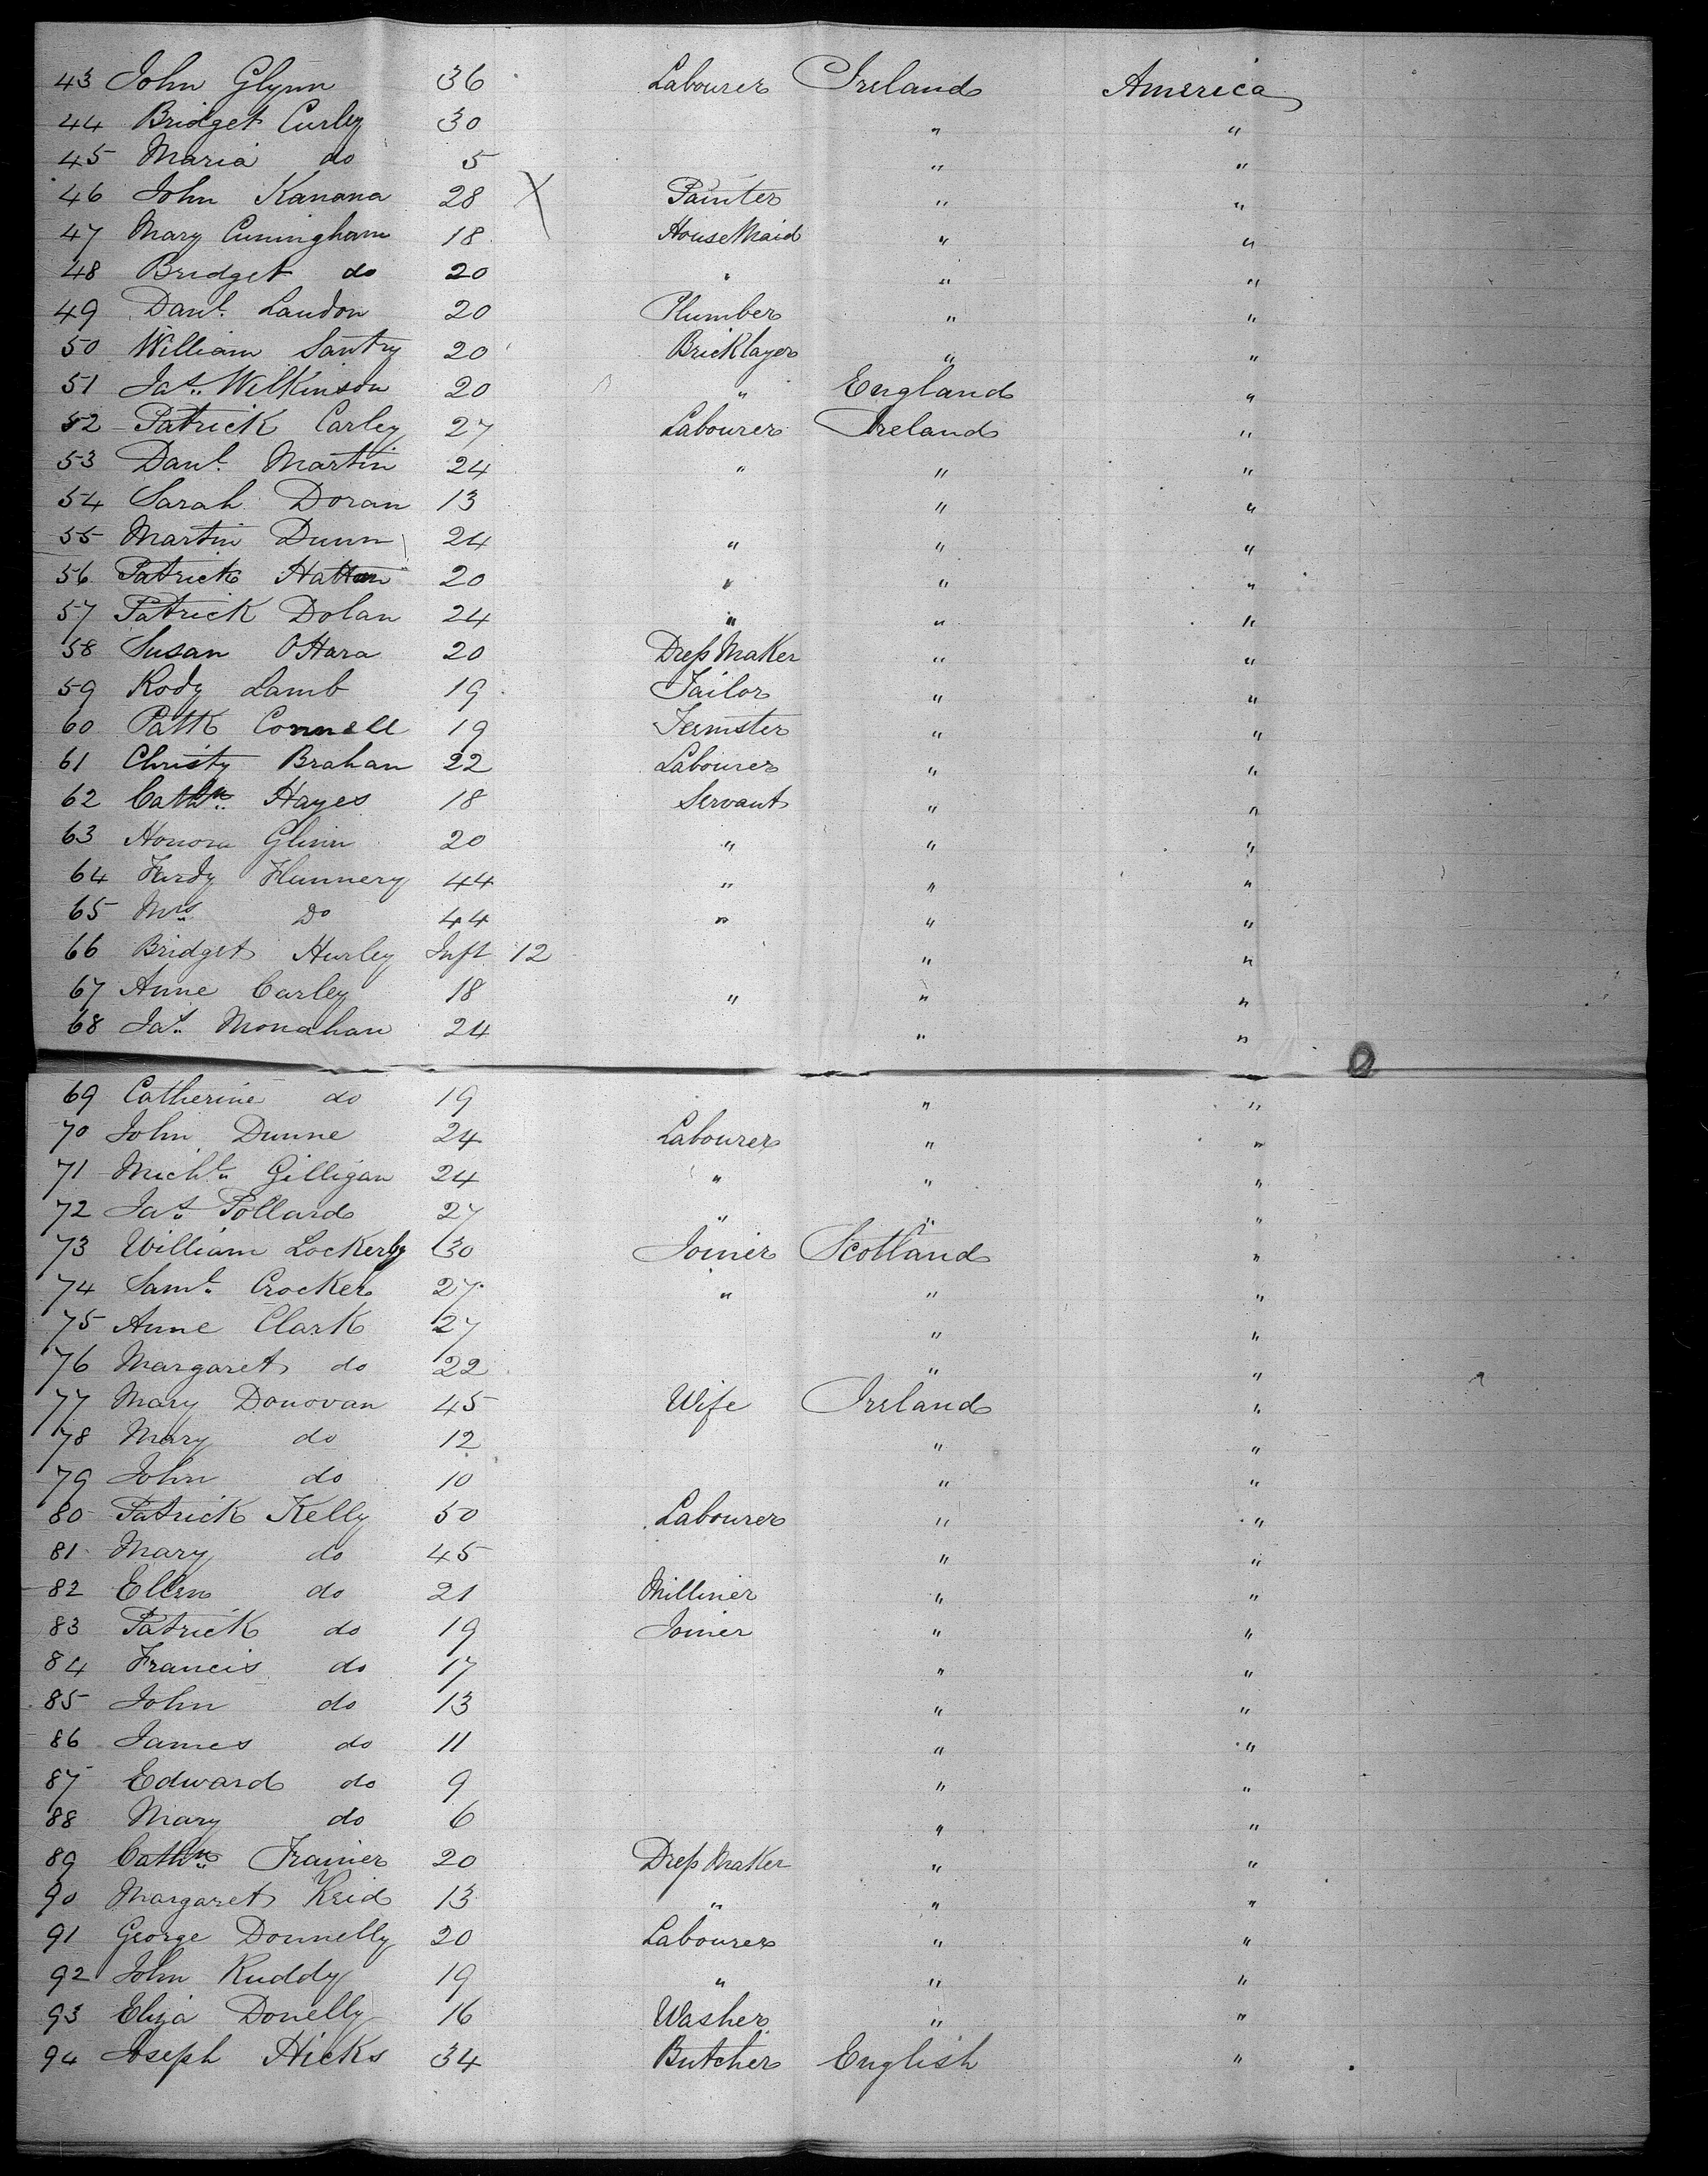 43 John Glynn 36 Labourer Ireland America
44 Bridget Curley 30 " "
45 Maria do 5 " "
46 John Kanana 28 X Painter " "
47 Mary Cuningham 18 HouseMaid " "
48 Bridget do 20 " " "
49 Danl. Landon 20 Plumber " "
50 William Santry 20 Bricklayer " "
51 Jas. Wilkinson 20 " England "
52 Patrick Carley 27 Labourer Ireland "
53 Danl. Martin 24 " " "
54 Sarah Doran 13 " "
55 Martin Dunn 24 " " "
56 Patrick Hattan 20 " " "
57 Patrick Dolan 24 " " "
58 Susan OHara 20 Dress Maker " "
59 Rody Lamb 19 Tailor " "
60 Patk Connell 19 Teemster " "
61 Christy Brahan 22 Labourer " "
62 Cathn. Hayes 18 Servant " "
63 Honora Glinn 20 " " "
64 Fardy Flannery 44 " " "
65 Mrs Do 44 " " "
66 Bridget Hurley Inft 12 " "
67 Anne Carley 18 " " "
68 Jas. Monahan 24 " "
69 Catherine do 19 " "
70 John Dunne 24 Labourer " "
71 Michl. Gilligan 24 " " "
72 Jas. Pollard 27 " " "
73 William Lockerby 30 Joiner Scotland "
74 Saml. Crocker 27 " " "
75 Anne Clark 27 " "
76 Margaret do 22 " "
77 Mary Donovan 45 Wife Ireland "
78 Mary do 12 " "
79 John do 10 " "
80 Patrick Kelly 50 Labourer " "
81 Mary do 45 " "
82 Ellen do 21 Milliner " "
83 Patrick do 19 Joiner " "
84 Francis do 17 " "
85 John do 13 " "
86 James do 11 " "
87 Edward do 9 " "
88 Mary do 6 " "
89 Cathn. Trainer 20 Dress Maker " "
90 Margaret Reid 13 " " "
91 George Donnelly 20 Labourer " "
92 John Ruddy 19 " " "
93 Eliza Donelly 16 Washer " "
94 Joseph Hicks 34 Butcher English "